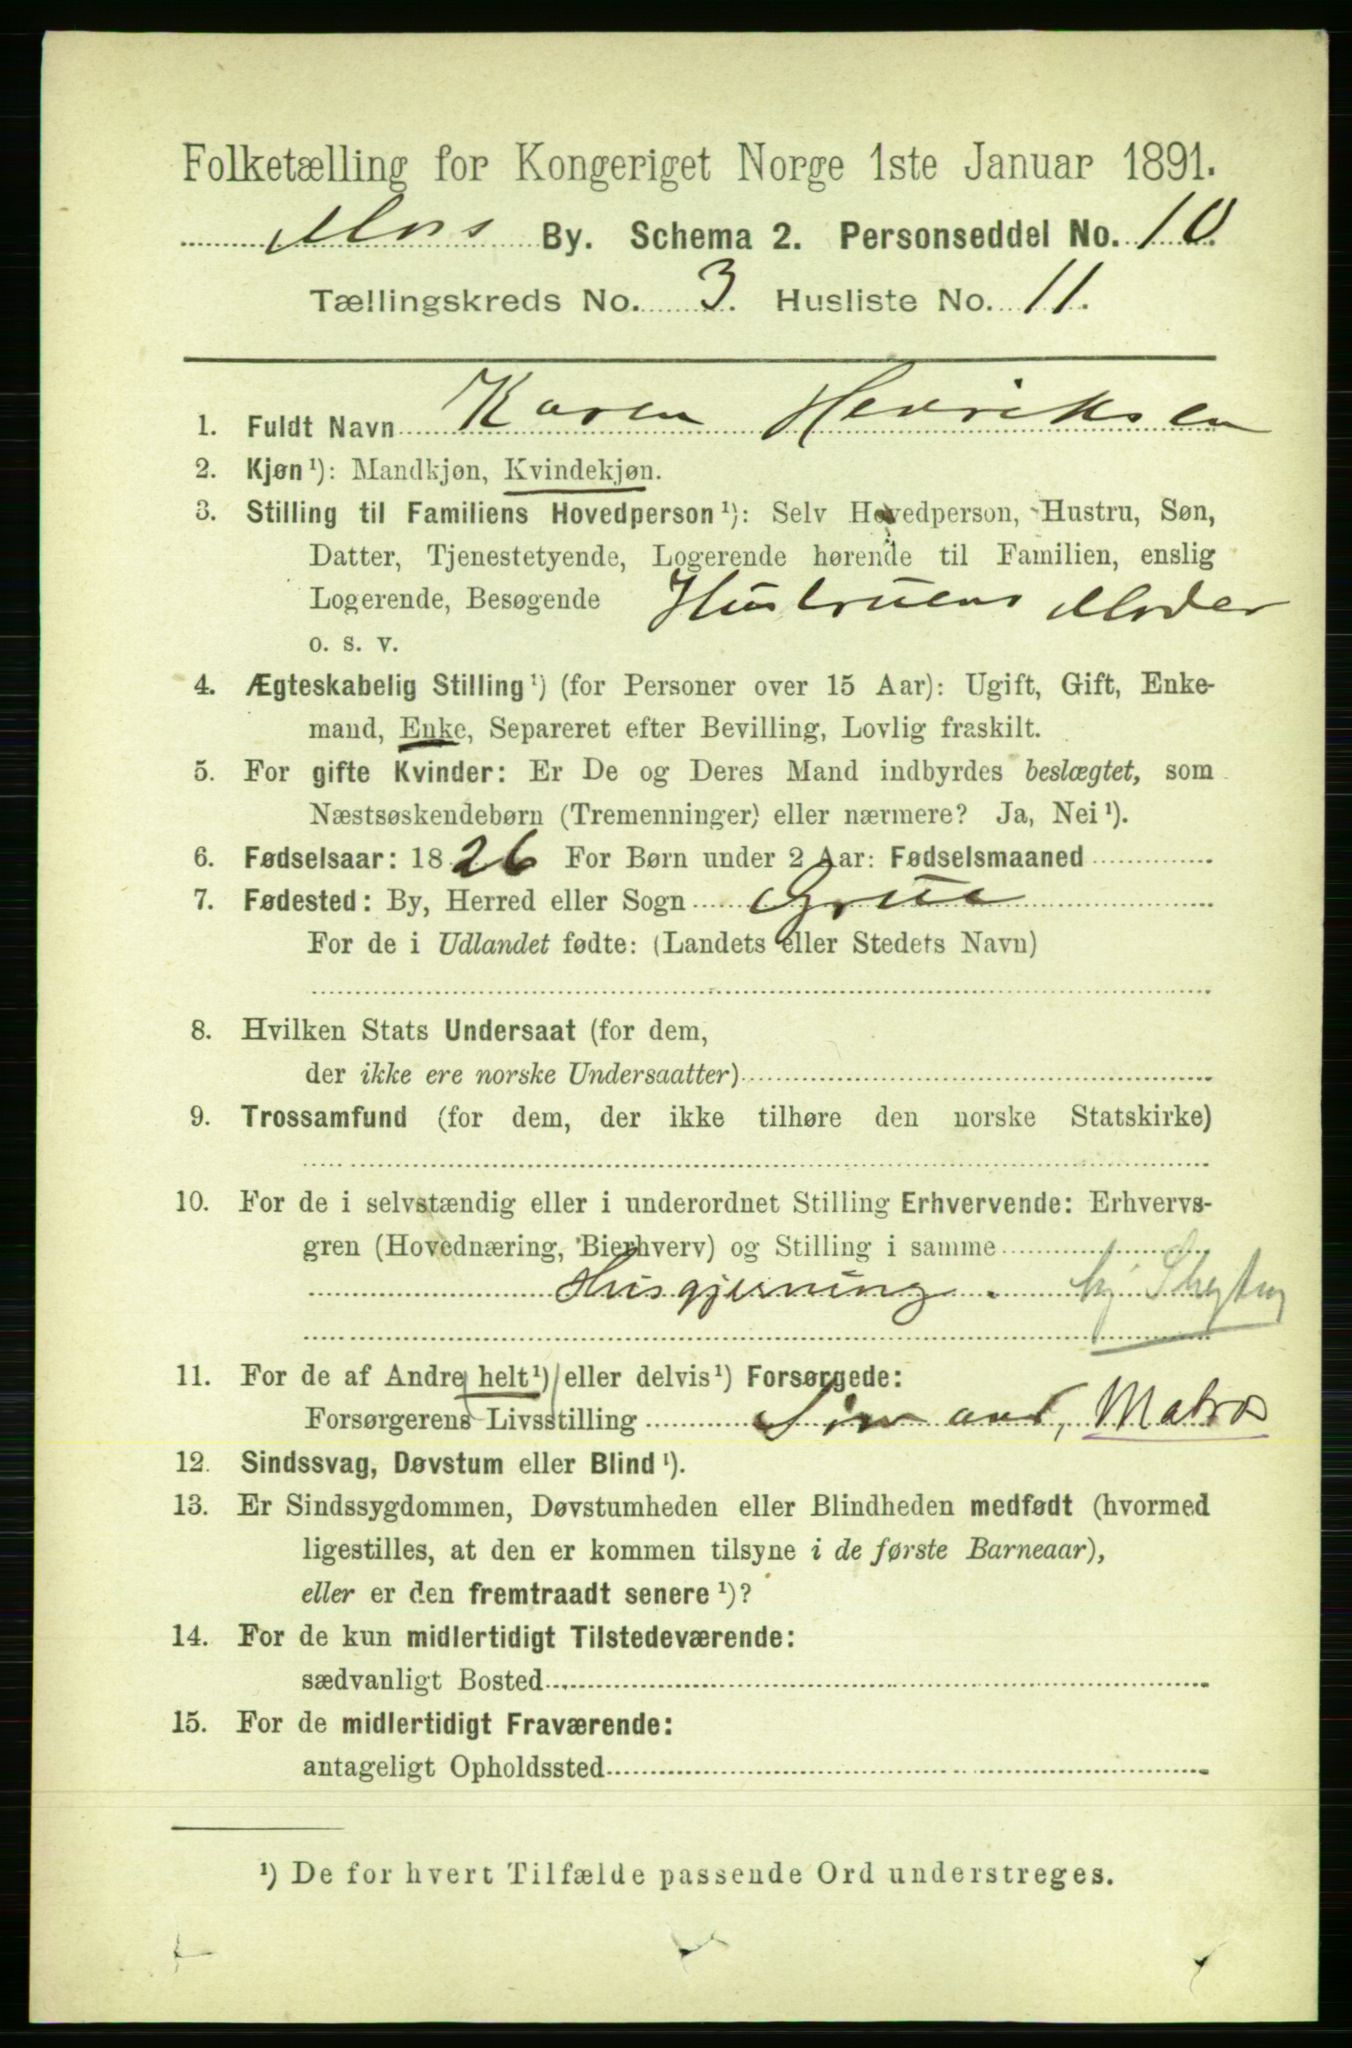 Folketælling for Kongeriget Norge 1ste Januar 1891.
Moss By. Schema 2. Personseddel No. 10.
Tællingskreds No. 3. Husliste No. 11.
1. Fuldt Navn Karen Henriksen
2. Kjøn¹): Mandkjøn, Kvindekjøn.
3. Stilling til Familiens Hovedperson¹): Selv Hovedperson, Hustru, Søn,
Datter, Tjenestetyende, Logerende hørende til Familien, enslig
Logerende, Besøgende Hustruens Moder
o. s. v.
4. Ægteskabelig Stilling¹) (for Personer over 15 Aar): Ugift, Gift, Enke-
mand, Enke, Separeret efter Bevilling, Lovlig fraskilt.
5. For gifte Kvinder: Er De og Deres Mand indbyrdes beslægtet, som
Næstsøskendebørn (Tremenninger) eller nærmere? Ja, Nei¹).
6. Fødselsaar: 1826 For Børn under 2 Aar: Fødselsmaaned
7. Fødested: By, Herred eller Sogn Grue
For de i Udlandet fødte: (Landets eller Stedets Navn)
8. Hvilken Stats Undersaat (for dem,
der ikke ere norske Undersaatter)
9. Trossamfund (for dem, der ikke tilhøre den norske Statskirke)
10. For de i selvstændig eller i underordnet Stilling Erhvervende: Erhvervs-
gren (Hovednæring, Bierhverv) og Stilling i samme
Husgjerning. hj.
11. For de af Andre helt¹) eller delvis¹) Forsørgede:
Forsørgerens Livsstilling Sømand, Matros
12. Sindssvag, Døvstum eller Blind¹).
13. Er Sindssygdommen, Døvstumheden eller Blindheden medfødt (hvormed
ligestilles, at den er kommen tilsyne i de første Barneaar),
eller er den fremtraadt senere¹)?
14. For de kun midlertidigt Tilstedeværende:
sædvanligt Bosted
15. For de midlertidigt Fraværende:
antageligt Opholdssted
¹) De for hvert Tilfælde passende Ord understreges.